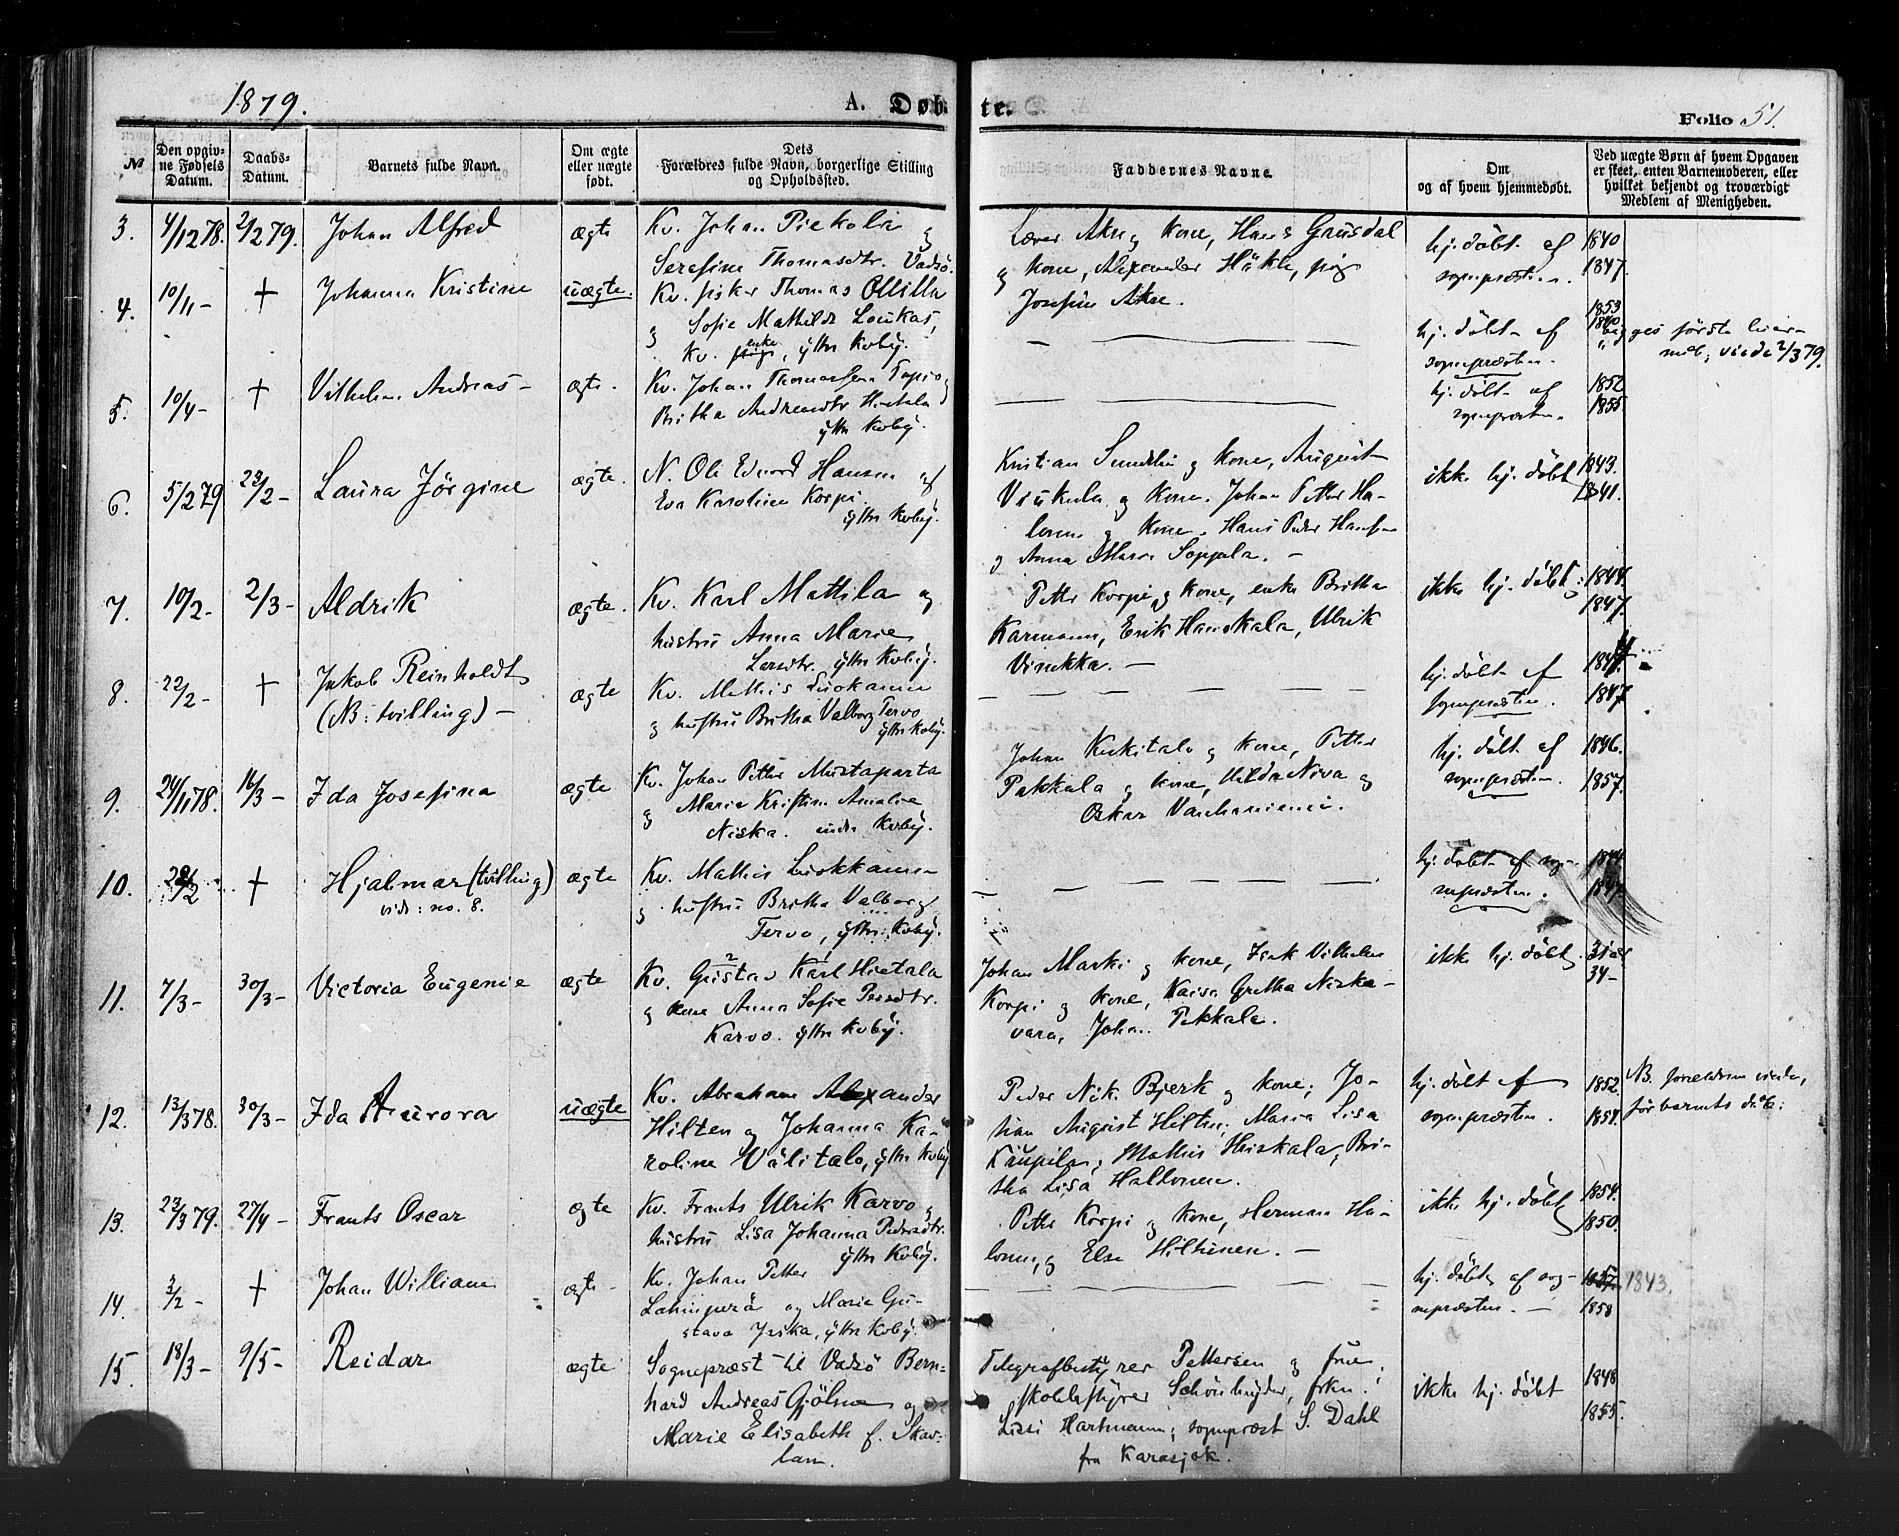 1879.
A. Døb-
te.
Folio 51.
№
Den opgiv-
ne Fødsels
Datum.
Daabs-
Datum.
Barnets fulde Navn.
Om ægte
eller uægte
født.
Dets
Forældres fulde Navn, borgerlige Stilling
og Opholdsted.
Faddernes Navne.
Om
og af hvem hjemmedøbt.
Ved uægte Børn af hvem Opgaven
er skeet, enten Barnemoderen, eller
hvilket bekjendt og troværdigt
Medlem af Menigheden.
3. 4/12 78. 2/2 79. Johan Alfred
ægte
Kv. Johan Piekola og
Serefine Thomasdtr. Vadsö.
Lærer Akre og kone, Hans Grusdal
og kone, Alexander Häkle, pige
Josefine Akre.
hj. döbt af
sognepræsten.
1840
1847.
4. 10/11 - † Johanna Kristine
uægte.
Kv. fisker Thomas Ollilla
og Sofie Mathilde Loukas,
Kv. enke, yttre Kvby.
hj. döbt af
sognepræsten.
1853
1840
begges første leier-
mål; viede 2/3 79.
5. 10/4 - † Vilhelm Andreas -
ægte.
Kv. Johan Thomassen Tapio og
Britha Andreasdtr Hietala
yttre Kvby.
hj. döbt af
sognepræsten.
1852
1855.
6. 5/2 79 23/2 - Laura Jörgine
ægte.
N. Ole Edvard Hansen og
Eva Karoline Korpi.
yttre Kvby.
Kristian Sundelin og kone, August
Viukula og kone. Johan Petter Ha-
lonen og kone. Hans Peder Hansen
og Anna Maria Soppala. -
ikke hj. döbt
1843.
1841.
7. 10/2 - 2/3 - Aldrik
ægte.
Kv. Karl Mattila og
hustru Anna Marie
Larsdtr. yttre Kvby.
Petter Korpi og kone, enke Britha
Karmann, Erik Hanskala, Ulrik
Vinikka. -
ikke hj. döbt:
1844.
1847.
8. 22/2 - † Jakob Reinholdt
(NB: tvilling) -
ægte
Kv. Mathis Luokanen
og hustru Britha Valborg Tervo
yttre Kvby.
hj. döbt af
sognepræsten.
1844.
1847
9. 24/11 78. 16/3 - Ida Josefina
ægte
Kv. Johan Petter Mustaparta
og Maria Kristine Amalie
Niska. indre Kvby.
Johan Keskitalo og kone, Petter
Pakkala og kone, Hilda Niva og
Oskar Vanhaniemi.
hj. döbt af
sognepræsten.
1846.
1857.
10. 28/2 † Hjalmar (tvilling)
vide: no. 8.
ægte
Kv. Mathis Luokkanen
og hustru Britha Valborg
Tervo, yttre Kvby.
hj. döbt af sog-
nepræsten.
1844
1847
11. 7/3 - 30/3 - Victoria Eugenie
ægte
Kv. Gustav Karl Hietala
og kone Anna Sofie Persdtr.
Karvo. yttre Kvby.
Johan Marki og kone, Isak Vilhelm
Korpi og kone, Kaisa Gretha Niska-
vara, Johan Pekkala.
ikke hj. döbt.
31 år
34 -
12. 13/3 78. 30/3 - Ida Aurora
uægte
Kv. Abraham Alexander
Hilten og Johanna Ka-
roline Välitalo, yttre Kvby
Peder Nik. Bjerk og kone; Jo-
han August Hilten; Maria Lisa
Kaupila; Mathis Heiskala; Bri-
tha Lisa Haltonen.
hj. döbt af
sognepræsten.
1852
1854.
NB. forældrene viede,
för barnets dåb:
13. 23/3 79. 27/4 - Frants Oscar
ægte
Kv. Frants Ulrik Karvo og
hustru Lisa Johanna Pedersdtr.
yttre Kvby.
Petter Korpi og kone, Herman Ha-
lonen, og Else Hiltunen. -
ikke hj. döbt
1854.
1850.
14. 3/2 - † Johan William
ægte -
Kv. Johan Petter
Lahenperä og Maria Gu-
stava Iska, yttre Kvby.
hj. döbt af sog-
nepræsten. -
1857 1843.
1858
15. 18/3 - 9/5 - Reidar
ægte
Sognepræst til Vadsö Bern-
hard Andreas Gjölme og
Marie Elisabeth f. Skav-
lan.
Telegrafbestyrer Pettersen og frue,
skolebestyrer Schönheyder, frkn.
Lissi Hartmann; sognepræst S. Dahl
fra Karasjok.
ikke hj. döbt
1848
1855.